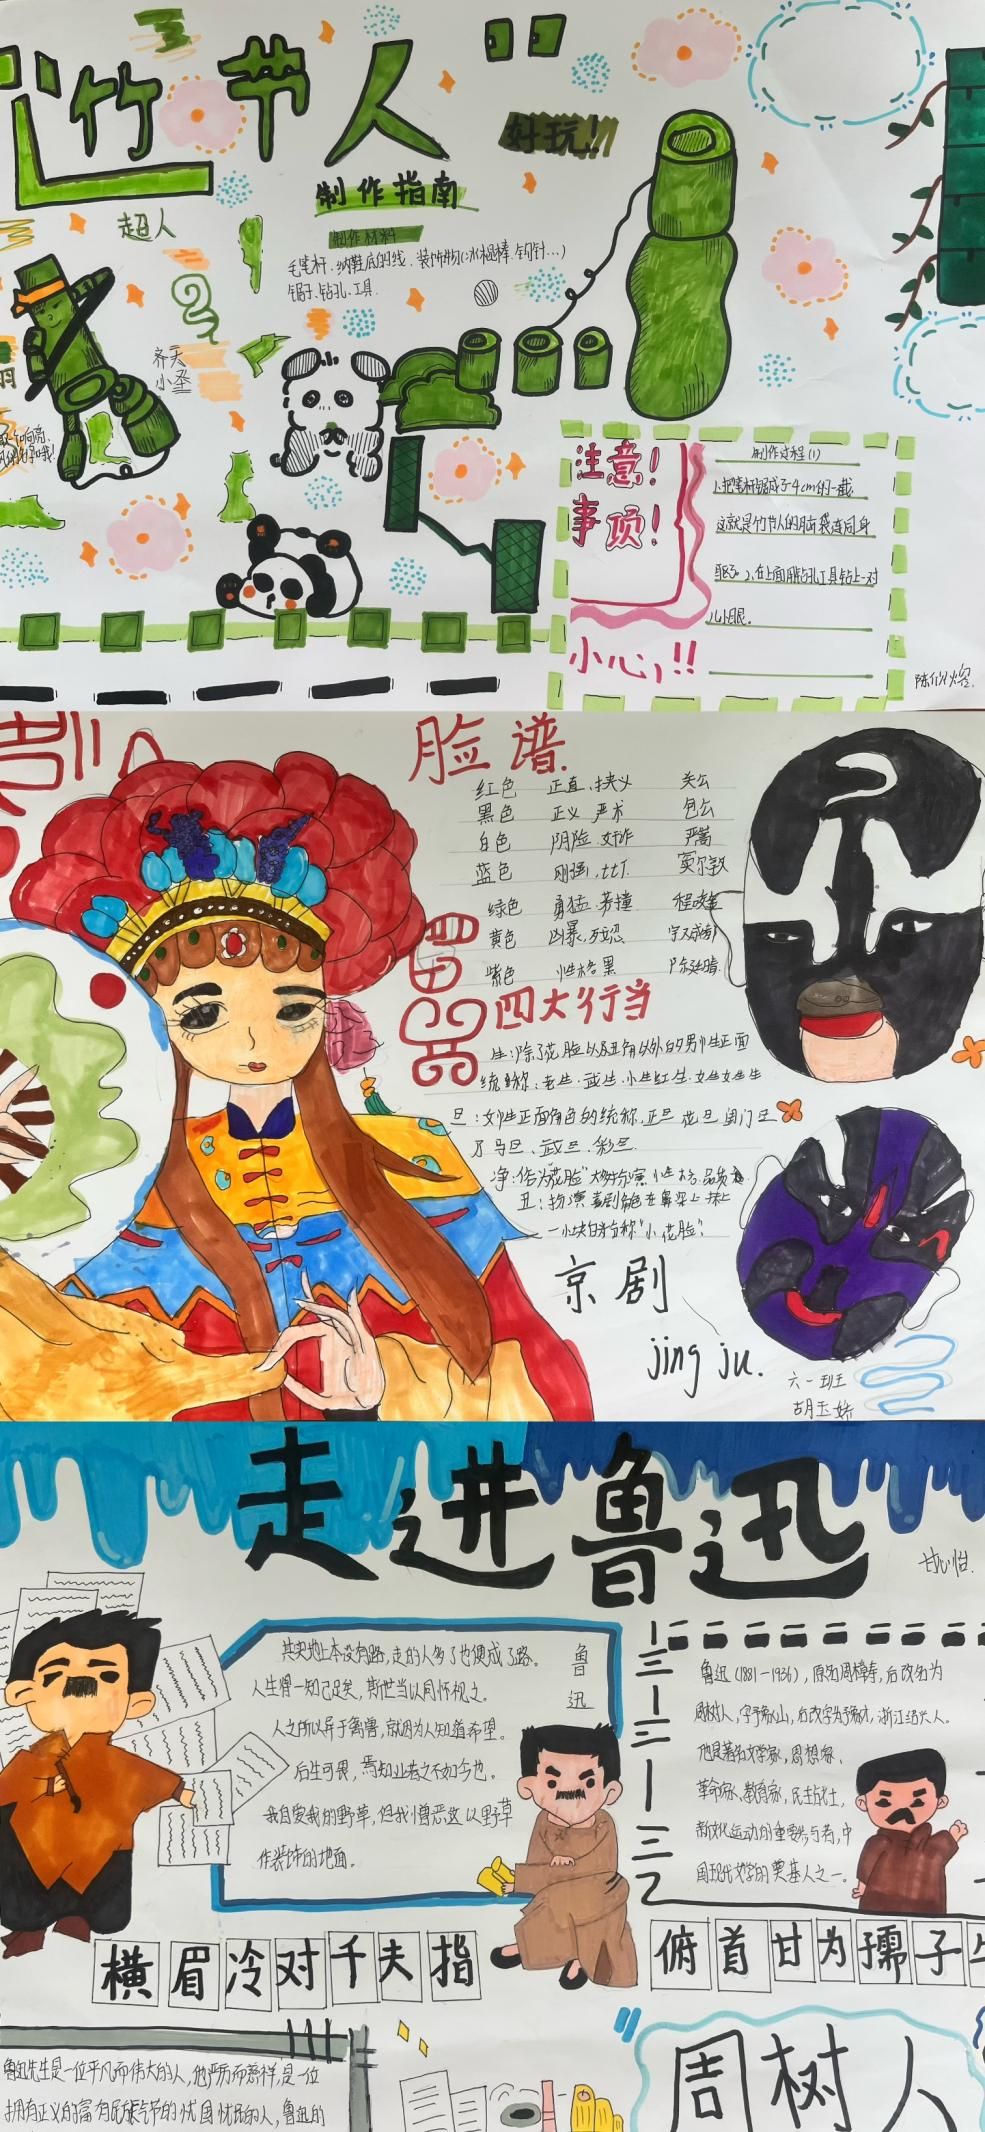 竹节人
好玩!!
制作指南
超人
制作材料
毛笔杆、纳鞋底的线、装饰物(冰棍棒、钩针…)
锯子、钻孔工具
齐天
小圣
注意!
事项!
小心!!!
制作过程(1)
1.把笔杆锯成3-4cm的一截
这就是竹节人的脑袋连同身
躯了 2.在上面用钻孔工具钻上一对
儿小眼。
脸谱
红色 正直、挟义 关公
黑色 正义 严术 包公
白色 阴险、奸诈 严嵩
蓝色 刚强 窦尔敦
绿色 勇猛、莽撞 程咬金
黄色 凶暴、残忍 宇文成都
紫色 性格黑
四大行当
生:除了花脸以及丑角以外的男性正面
统称:老生、武生、小生红生、女生女生生
旦:女性正面角色的统称,正旦 花旦 闺门旦
刀马旦、武旦、彩旦
净:俗为"花脸"大多扮演 性格、品质
丑:扮演喜剧角色在鼻梁上抹上
一小块白粉称"小花脸"
京剧
jing ju.
六一班
走进鲁迅
甘心怡
其实地上本没有路,走的人多了也便成了路。
人生得一知己足矣,斯世当以同怀视之。
人之所以异于禽兽,就因为人知道希望。
后生可畏,焉知来者之不如今也。
我自爱我的野草,但我憎恶这以野草
作装饰的地面。
鲁迅
鲁迅(1881-1936),原名周樟寿,后改名为
周树人,字豫山,后改字为豫才,浙江绍兴人。
他是著名文学家,思想家、
革命家、教育家,民主战士,
新文化运动的重要参与者,中
国现代文学的奠基人之一。
横眉冷对千夫指
俯首甘为孺子牛
鲁迅先生是一位平凡而伟大的人,他严厉而慈祥,是一位
拥有正义的富有民族气节的忧国忧民的人,鲁迅的
周树人